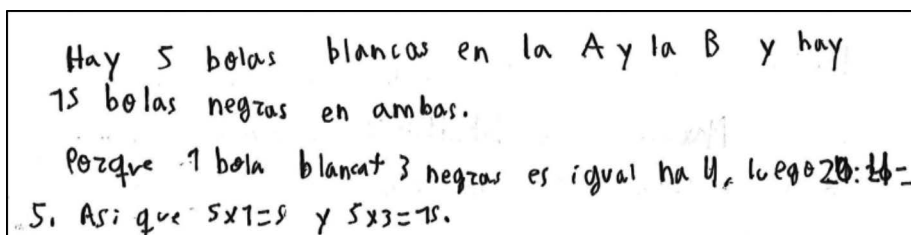 Hay 5 bolas blancas en la A y la B y hay
15 bolas negras en ambas.
Porque 1 bola blanca + 3 negras es igual ha 4, luego 20:4=
5. Asi que 5x1=5 y 5x3=15.